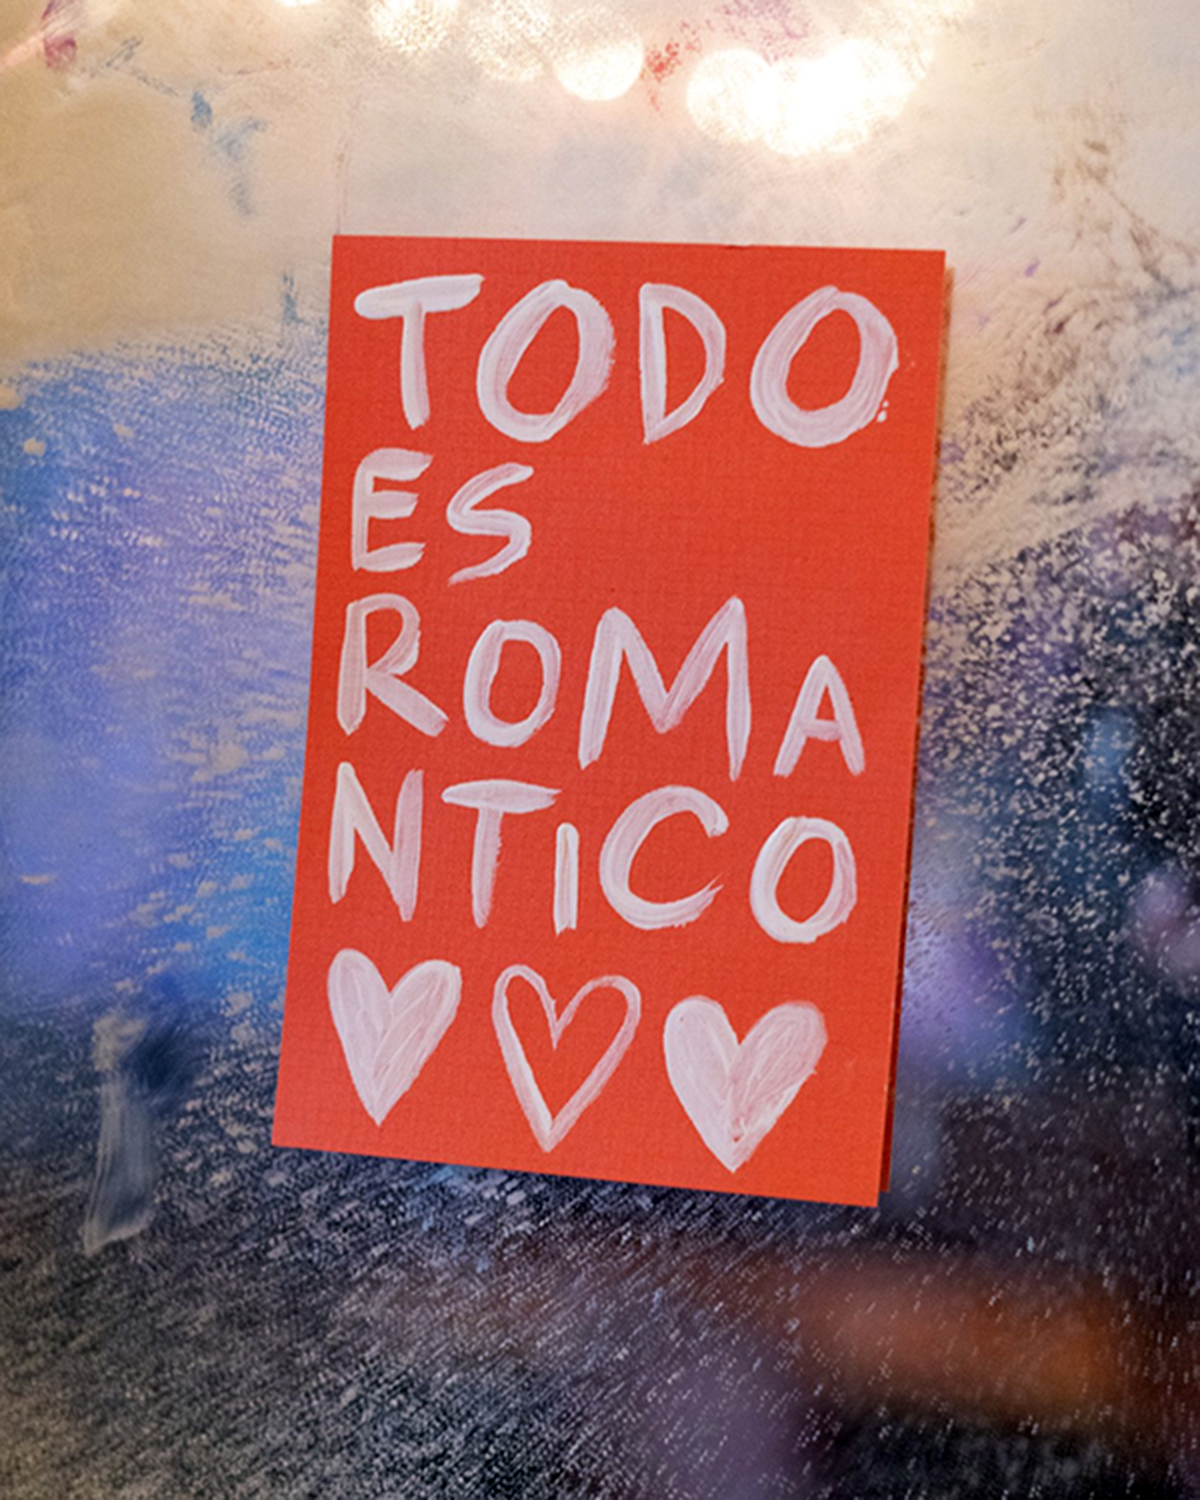 TODO
ES
ROMA
NTiCO